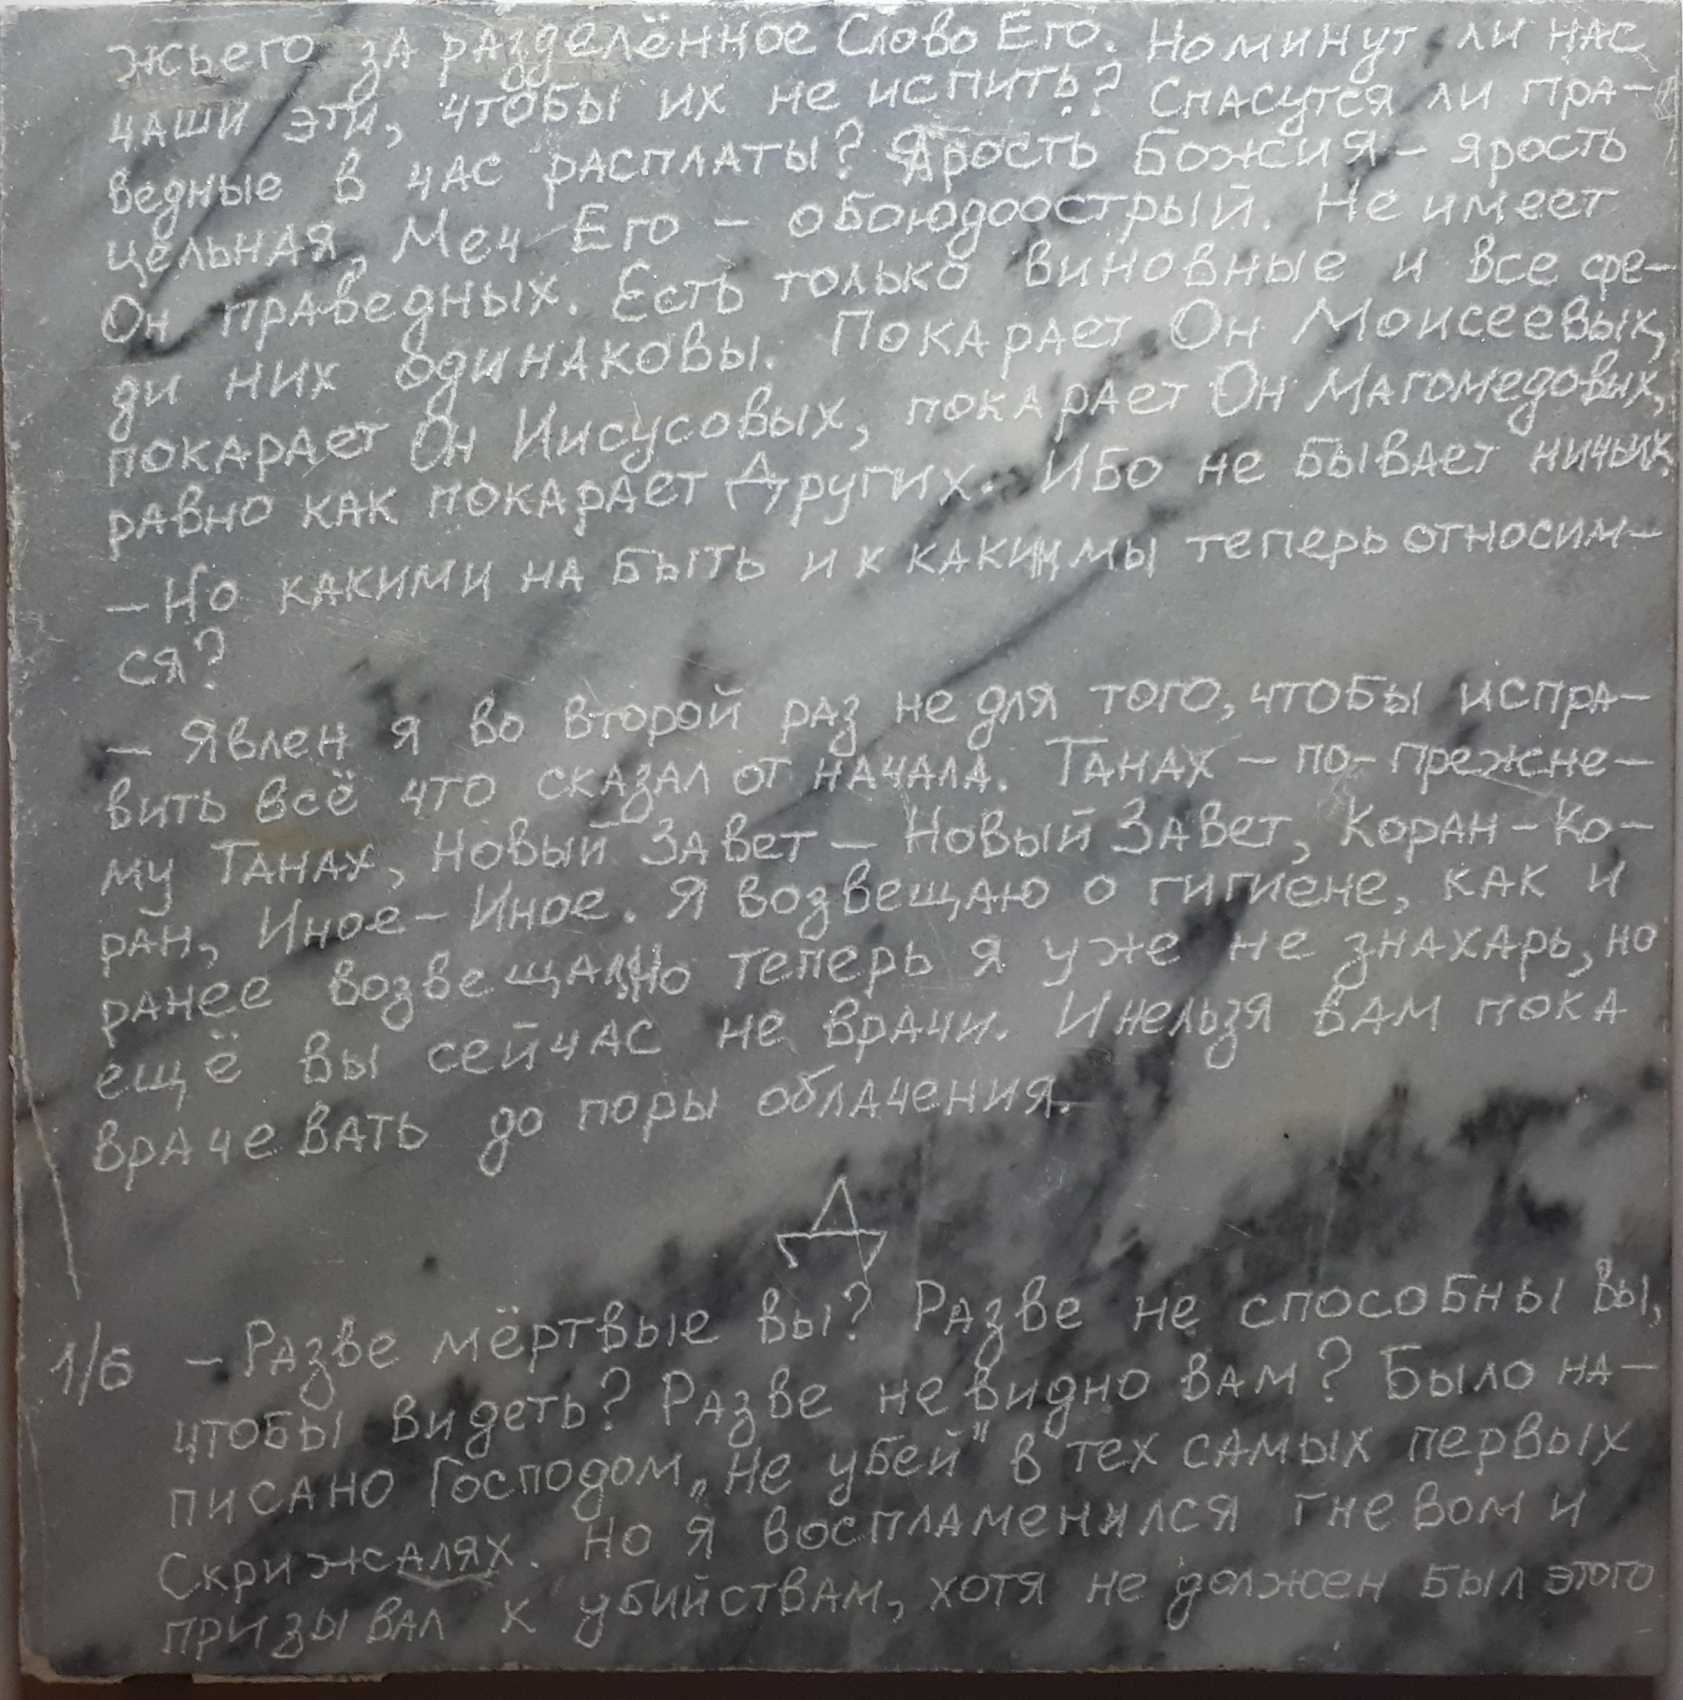 жьего за разделённое Слово Его. Но минут ли нас
чаши эти, чтобы их не испить? Спасутся ли пра-
ведные в час расплаты? Ярость Божия – ярость
цельная, Меч Его – обоюдоострый. Не имеет
Он праведных. Есть только виновные и все сре-
ди них одинаковы. Покарает Он Моисеевых,
покарает Он Иисусовых, покарает Он Магомедовых,
равно как покарает Других. Ибо не бывает ничьих.
– Но какими на быть и к каким мы теперь относим-
ся?
– Явлен я во второй раз не для того, чтобы испра-
вить всё что сказал от начала. Танах – по-прежне-
му Танах, Новый Завет – Новый Завет, Коран – Ко-
ран, Иное – Иное. Я возвещаю о гигиене, как и
ранее возвещал. Но теперь я уже не знахарь, но
ещё вы сейчас не врачи. И нельзя вам пока
врачевать до поры облачения.
Д
1/6 – Разве мёртвые вы? Разве не способны вы,
чтобы видеть? Разве не видно вам? Было на-
писано Господом „Не убей" в тех самых первых
Скрижалях. Но я воспламенился гневом и
призывал к убийствам, хотя не должен был этого